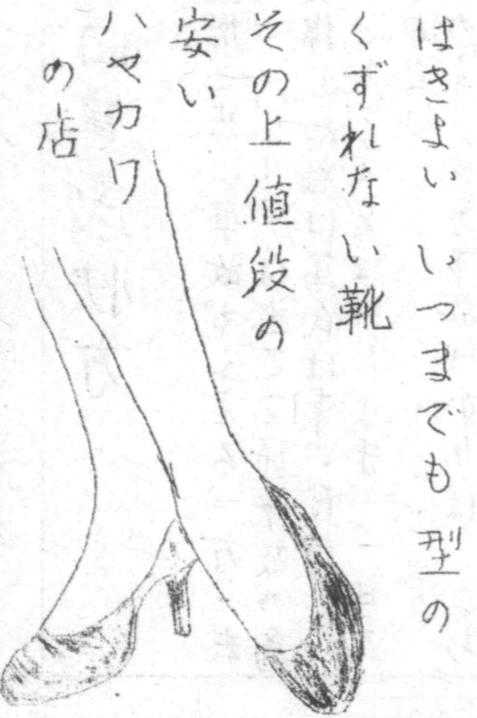 はきよい いつまでも型の
くずれない靴
その上値段の
安い
ハヤカワ
の店